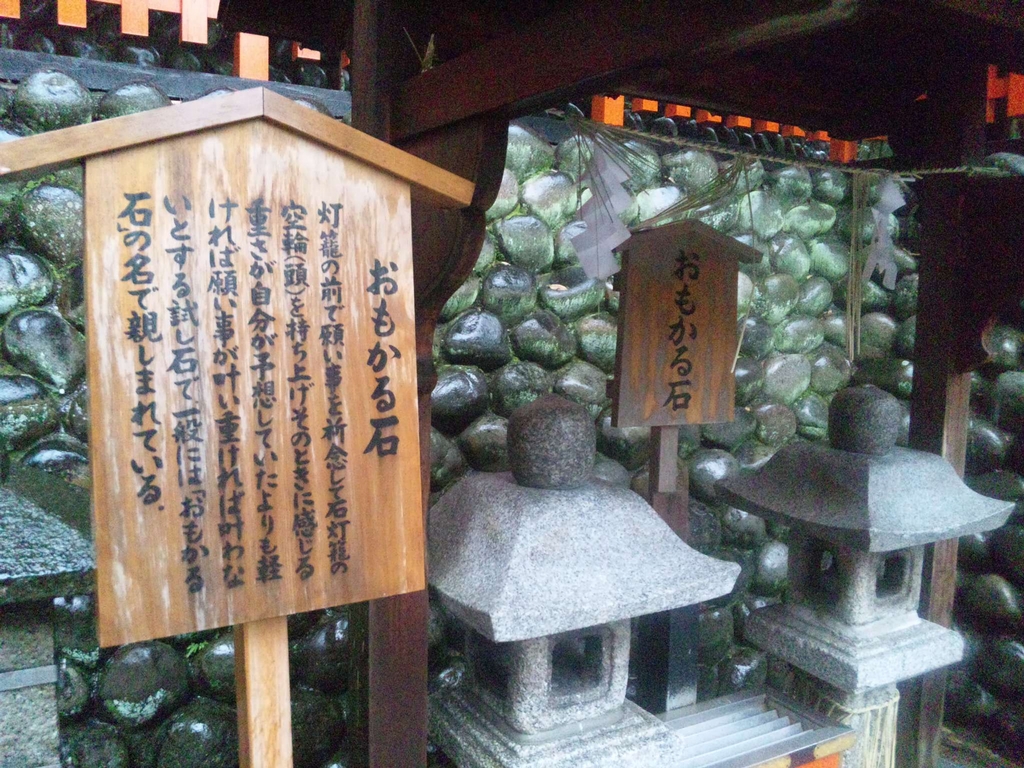 おもかる石
灯籠の前で願い事を祈念して石灯籠の
空輪(頭)を持ち上げそのときに感じる
重さが自分が予想していたよりも軽
ければ願い事が叶い重ければ叶わな
いとする試し石で一般には「おもかる
石」の名で親しまれている.
おもかる石